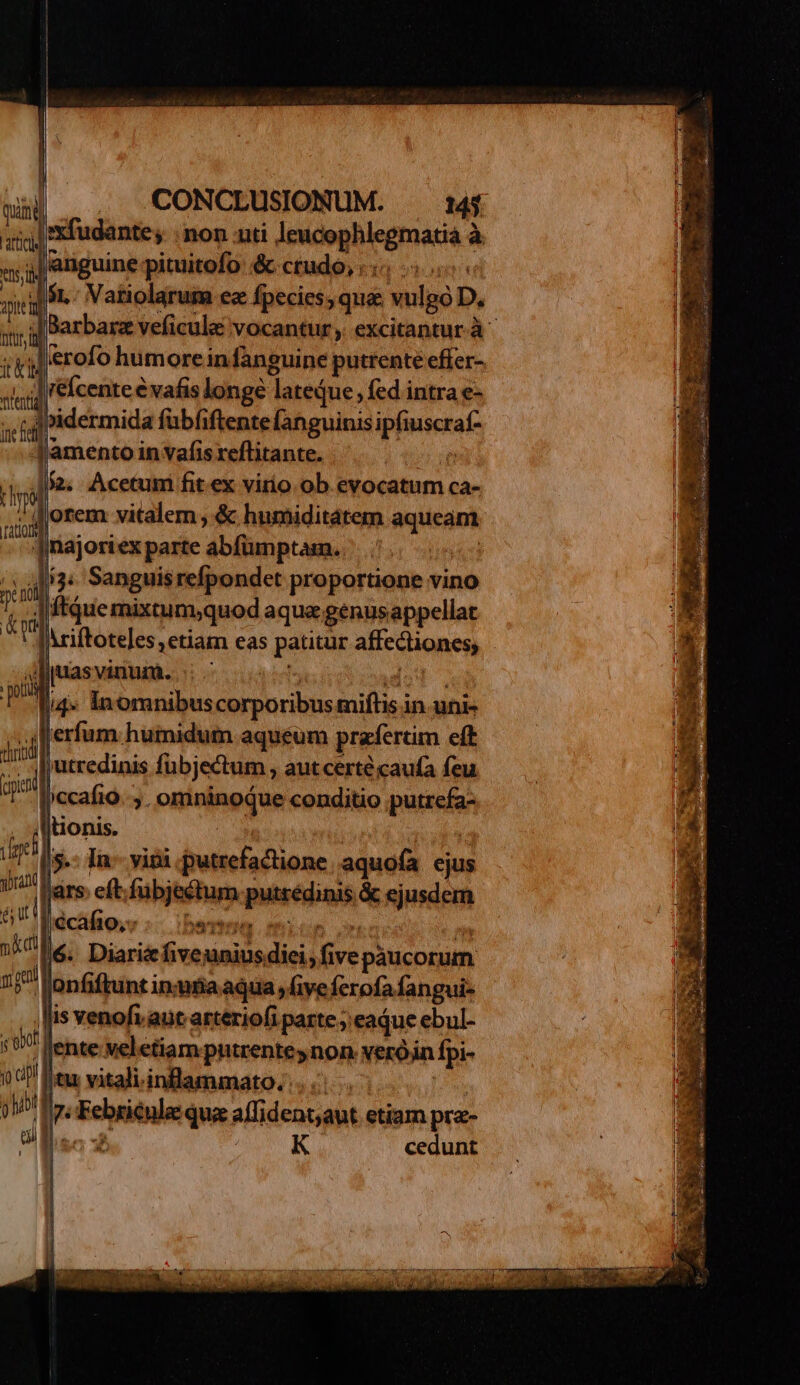 CONCLUSIONUM. 145
exſudante, non uti leucophlegmatia à
ſanguine pituitoſo & crudo,
51. Variolarum eæ ſpecies, quæ vulgò D.
Barbaræ veſiculæ vocantur, excitantur à
ſeroſo humore in ſanguine putrente effer-
veſcente è vaſis longè lateque, ſed intra e-
pidermida ſubſiſtente ſanguinis ipſius craſ-
ſamento in vaſis reſtitante.
52. Acetum fit ex vino ob evocatum ca-
lorem vitalem, & humiditatem aqueam
majori ex parte abſumptam.
53. Sanguis reſpondet proportione vino
eſtque mixtum, quod aquæ genus appellat
Ariſtoteles, etiam eas patitur affectiones,
quas vinum.
54. In omnibus corporibus miſtis in uni-
verſum humidum aqueum præſertim eſt
putredinis ſubjectum, aut certè cauſa ſeu
occaſio, omninoque conditio putrefa-
ctionis.
55. In vini putrefactione aquoſa ejus
pars eſt ſubjectum putredinis & ejusdem
occaſio,
56. Diariæ ſive unius diei, ſive paucorum
conſiſtunt in una aqua, ſive ſeroſa ſangui-
nis venoſi aut arterioſi parte, eaque ebul-
lente vel etiam putrente, non verò in ſpi-
ritu vitali inflammato.
57. Febriculæ quæ aſſident, aut etiam præ-
K cedunt